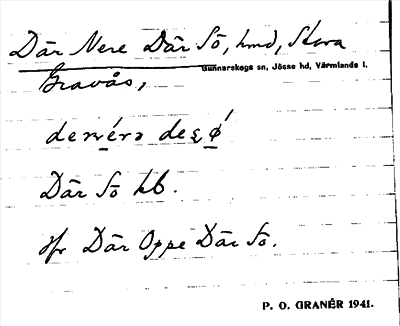 Där Nere Där Sö, hmd, Stora
Gunnarskogs sn, Jösse hd, Värmlands l.
Gravås,
Där Sö kb.
Jfr Där Oppe Där Sö.
P. O. GRANÉR 1941.